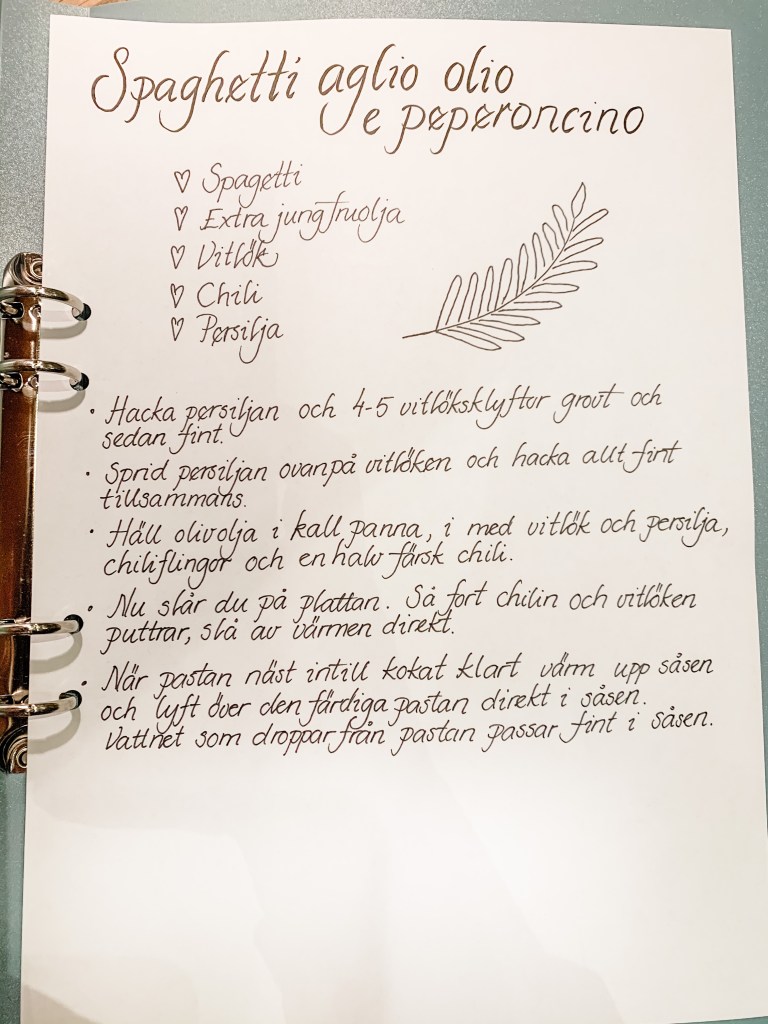 Spaghetti aglio olio
e peperoncino
♡ Spagetti
♡ Extra jungfruolja
♡ Vitlök
♡ Chili
♡ Persilja
• Hacka persiljan och 4-5 vitlöksklyftor grovt och
sedan fint.
• Sprid persiljan ovanpå vitlöken och hacka allt fint
tillsammans.
• Häll olivolja i kall panna, i med vitlök och persilja,
chiliflingor och en halv färsk chili.
• Nu slår du på plattan. Så fort chilin och vitlöken
puttrar, slå av värmen direkt.
• När pastan näst intill kokat klart värm upp såsen
och lyft över den färdiga pastan direkt i såsen.
Vattnet som droppar från pastan passar fint i såsen.